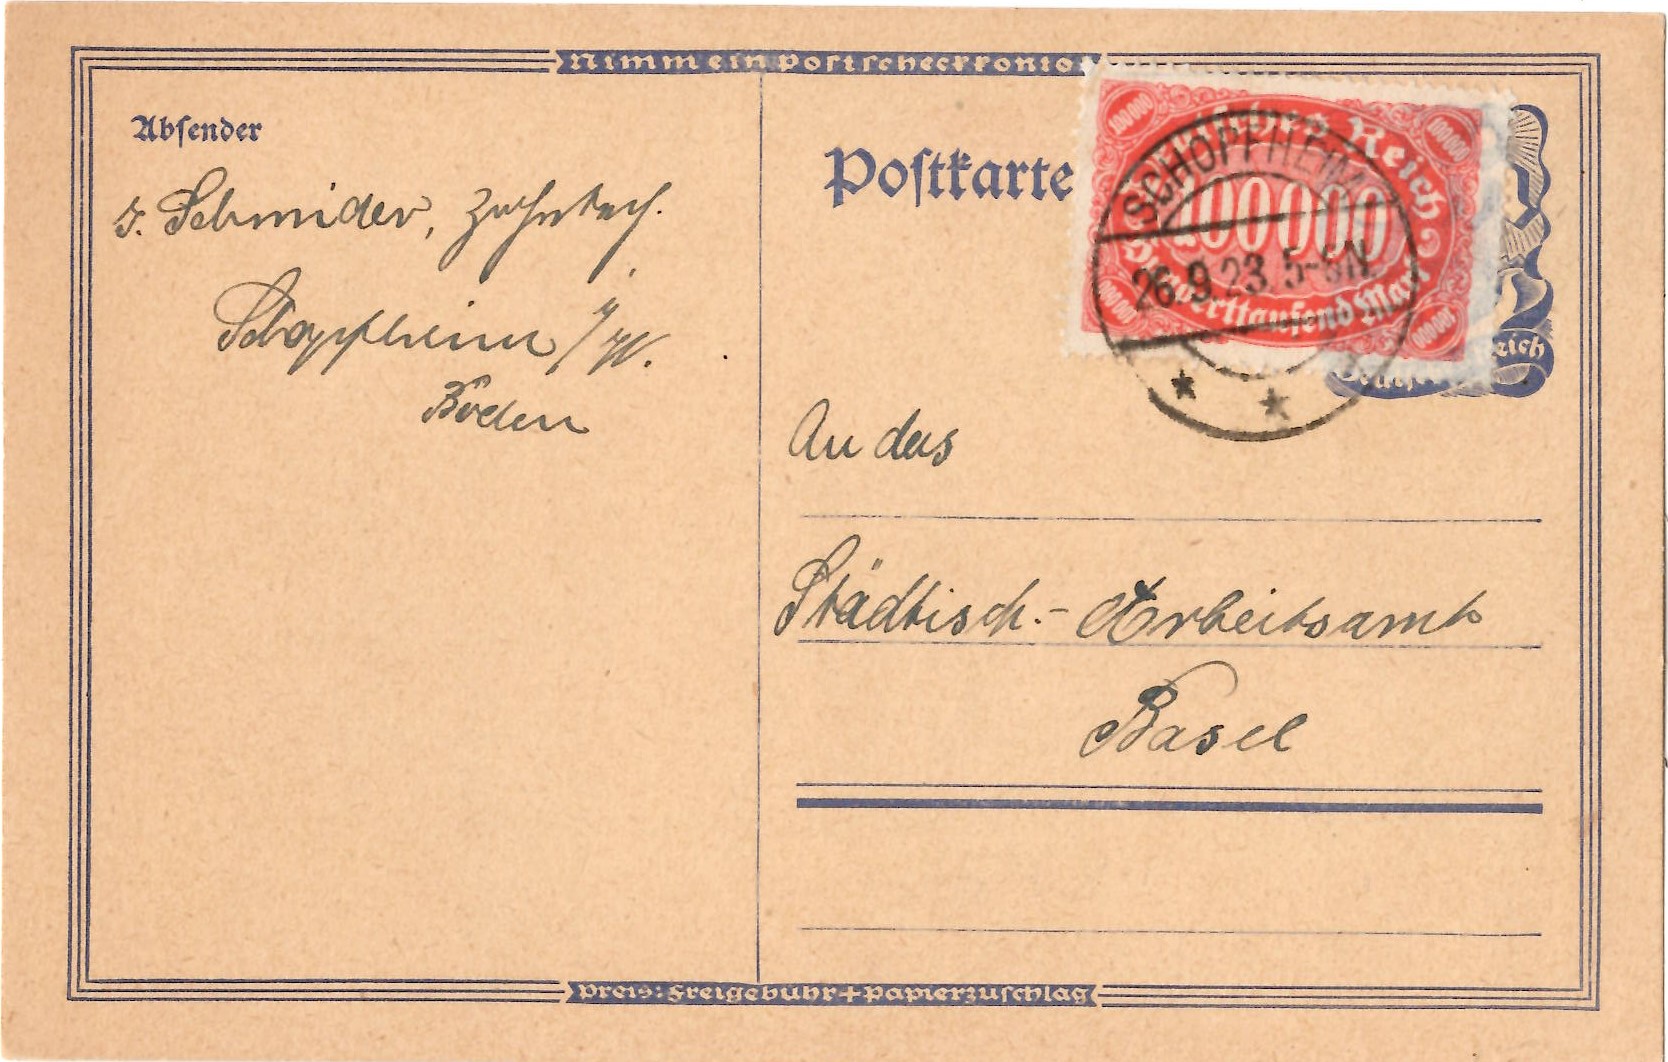 Nimm ein Postscheckkonto
Absender
J. Schmider, Zahntech.
Schopfheim / W.
Baden
Postkarte
Deutsches Reich
100000
100000
100000
100000
100000
Hunderttausend Mark
SCHOPFHEIM
26.9.23. 5-6N.
Reich
An das
Städtisch.- Arbeitsamt
Basel
Preis: Freigebühr + Papierzuschlag